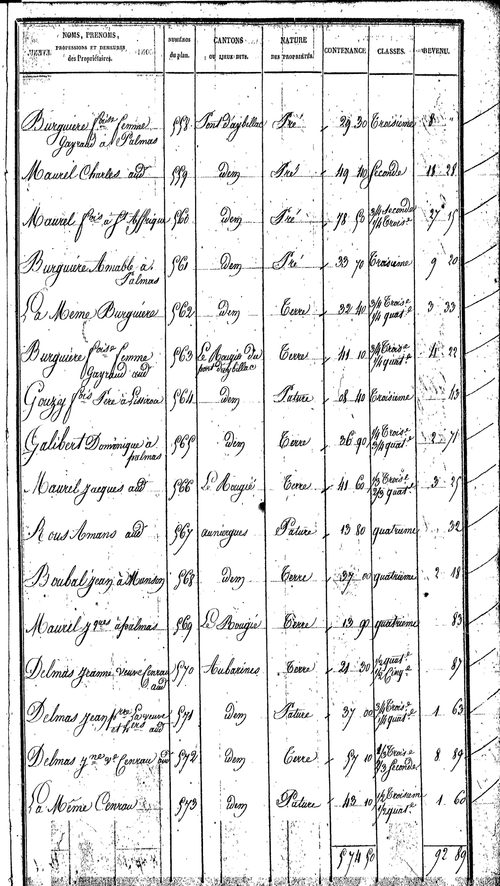 NOMS, PRENOMS, PROFESSIONS ET DEMEURES des Propriétaires. | NUMÉROS du plan. | CANTONS OU LIEUX-DITS. | NATURE DES PROPRIÉTÉS. | CONTENANCE. | CLASSES. | REVENU.
Burguiere fse femme | 558 | Pont d'aybillac | Pré | 29 30 | Troisieme | 8 "
Gayraud à Palmas
Maurel Charles aud | 559 | idem | Pré | 49 40 | Seconde | 18 28
Maurel fois à St Affrique | 560 | idem | Pré | 78 50 | 3/4 Seconde 1/4 Trois.e | 27 15
Burguiere Amable à | 561 | idem | Pré | 33 70 | Troisieme | 9 20
Palmas
La Meme Burguiere | 562 | idem | Terre | 32 40 | 3/4 Trois.e 1/4 quat.e | 3 33
Burguiere foise femme | 563 | Le Rougié du pont d'aybillac | Terre | 41 10 | 3/4 Trois.e 1/4 quat.e | 4 22
Gayraud aud
Gouzy fois Pere à | 564 | idem | Pature | 08 40 | Troisieme | 43
Galibert Dominique à | 565 | idem | Terre | 36 90 | 1/4 Trois.e 3/4 quat.e | 2 71
palmas
Maurel Jacques aud | 566 | Le Rougié | Terre | 41 60 | 1/3 Trois.e 2/3 quat.e | 3 25
Rous Amans aud | 567 | auniergues | Pature | 13 80 | quatrieme | 32
Boubal Jean à | 568 | idem | Terre | 37 00 | quatrieme | 2 18
Maurel Jques à palmas | 569 | Le Rougié | Terre | 13 90 | quatrieme | 83
Delmas Jeanne veuve Cenrau | 570 | Aubarines | Terre | 21 30 | 1/2 quat.e 1/2 Cinq.e | 87
aud
Delmas Jean pre La veuve | 571 | idem | Pature | 37 00 | 3/4 Trois.e 1/4 quat.e | 1 63
et hers aud
Delmas Jne ve Cenrau aud | 572 | idem | Terre | 57 10 | 1/3 Trois.e 2/3 Seconde | 8 89
La Même Cenrau | 573 | idem | Pature | 43 10 | 1/2 Troisieme 1/2 quat.e | 1 60
574 50 | 92 89